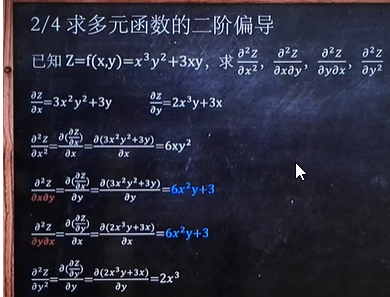 2/4 求多元函数的二阶偏导
已知 Z=f(x,y)=x³y²+3xy，求 ∂²Z/∂x², ∂²Z/∂x∂y, ∂²Z/∂y∂x, ∂²Z/∂y²
∂Z/∂x=3x²y²+3y ∂Z/∂y=2x³y+3x
∂²Z/∂x²=∂(∂Z/∂x)/∂x=∂(3x²y²+3y)/∂x=6xy²
∂²Z/∂x∂y=∂(∂Z/∂x)/∂y=∂(3x²y²+3y)/∂y=6x²y+3
∂²Z/∂y∂x=∂(∂Z/∂y)/∂x=∂(2x³y+3x)/∂x=6x²y+3
∂²Z/∂y²=∂(∂Z/∂y)/∂y=∂(2x³y+3x)/∂y=2x³